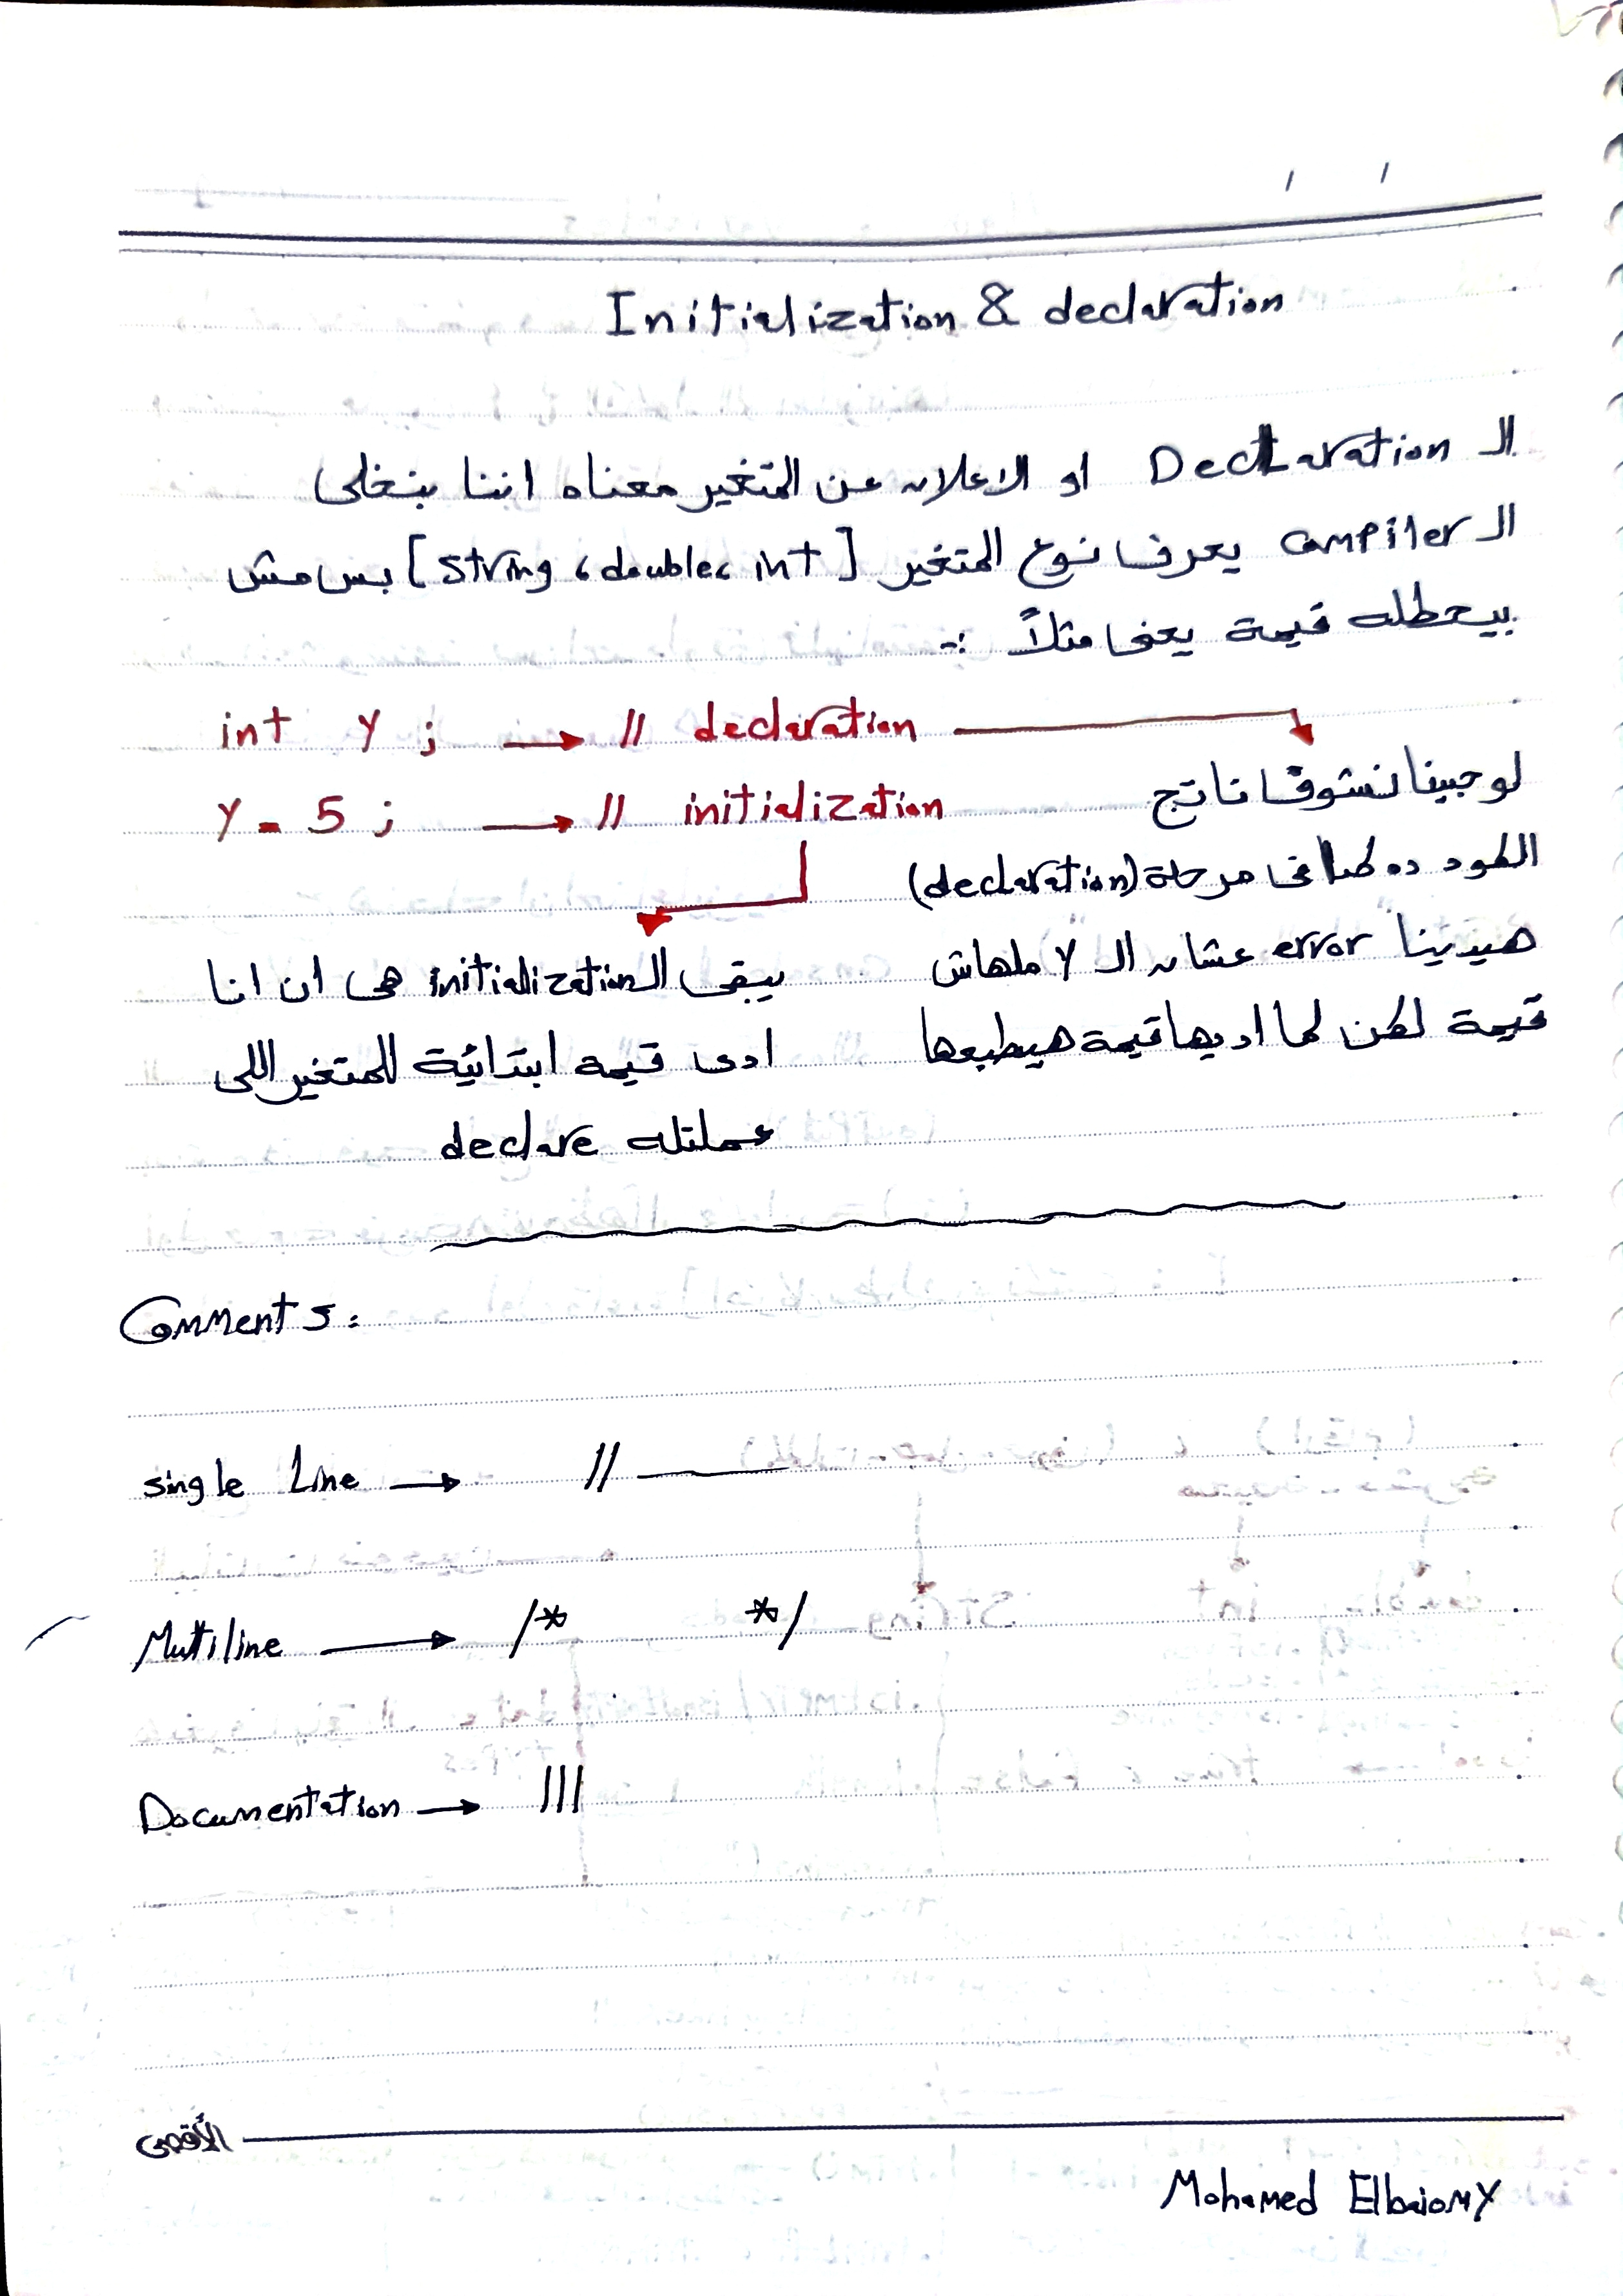 / /
Initialization & declaration
الـ Declaration او الاعلان عن المتغير معناه اننا بنخلى
الـ compiler يعرف نوع المتغير [String, double, int] بس مش
بيحطله قيمة يعنى مثلاً :-
int y ; → // declaration
y = 5 ; → // initialization
لو جينا نشوف ناتج
الكود ده طبعا فى مرحلة (declaration)
هيدينا error عشان الـ y ملهاش
قيمة لكن لما اديها قيمة هيطبعها
يبقى الـ initialization هى ان انا
ادى قيمه ابتدائية للمتغير اللى
عملتله declare
Comments :
single Line → //
Multiline → /* */
Documentation → ///
الأقصى
Mohamed Elbaiomy